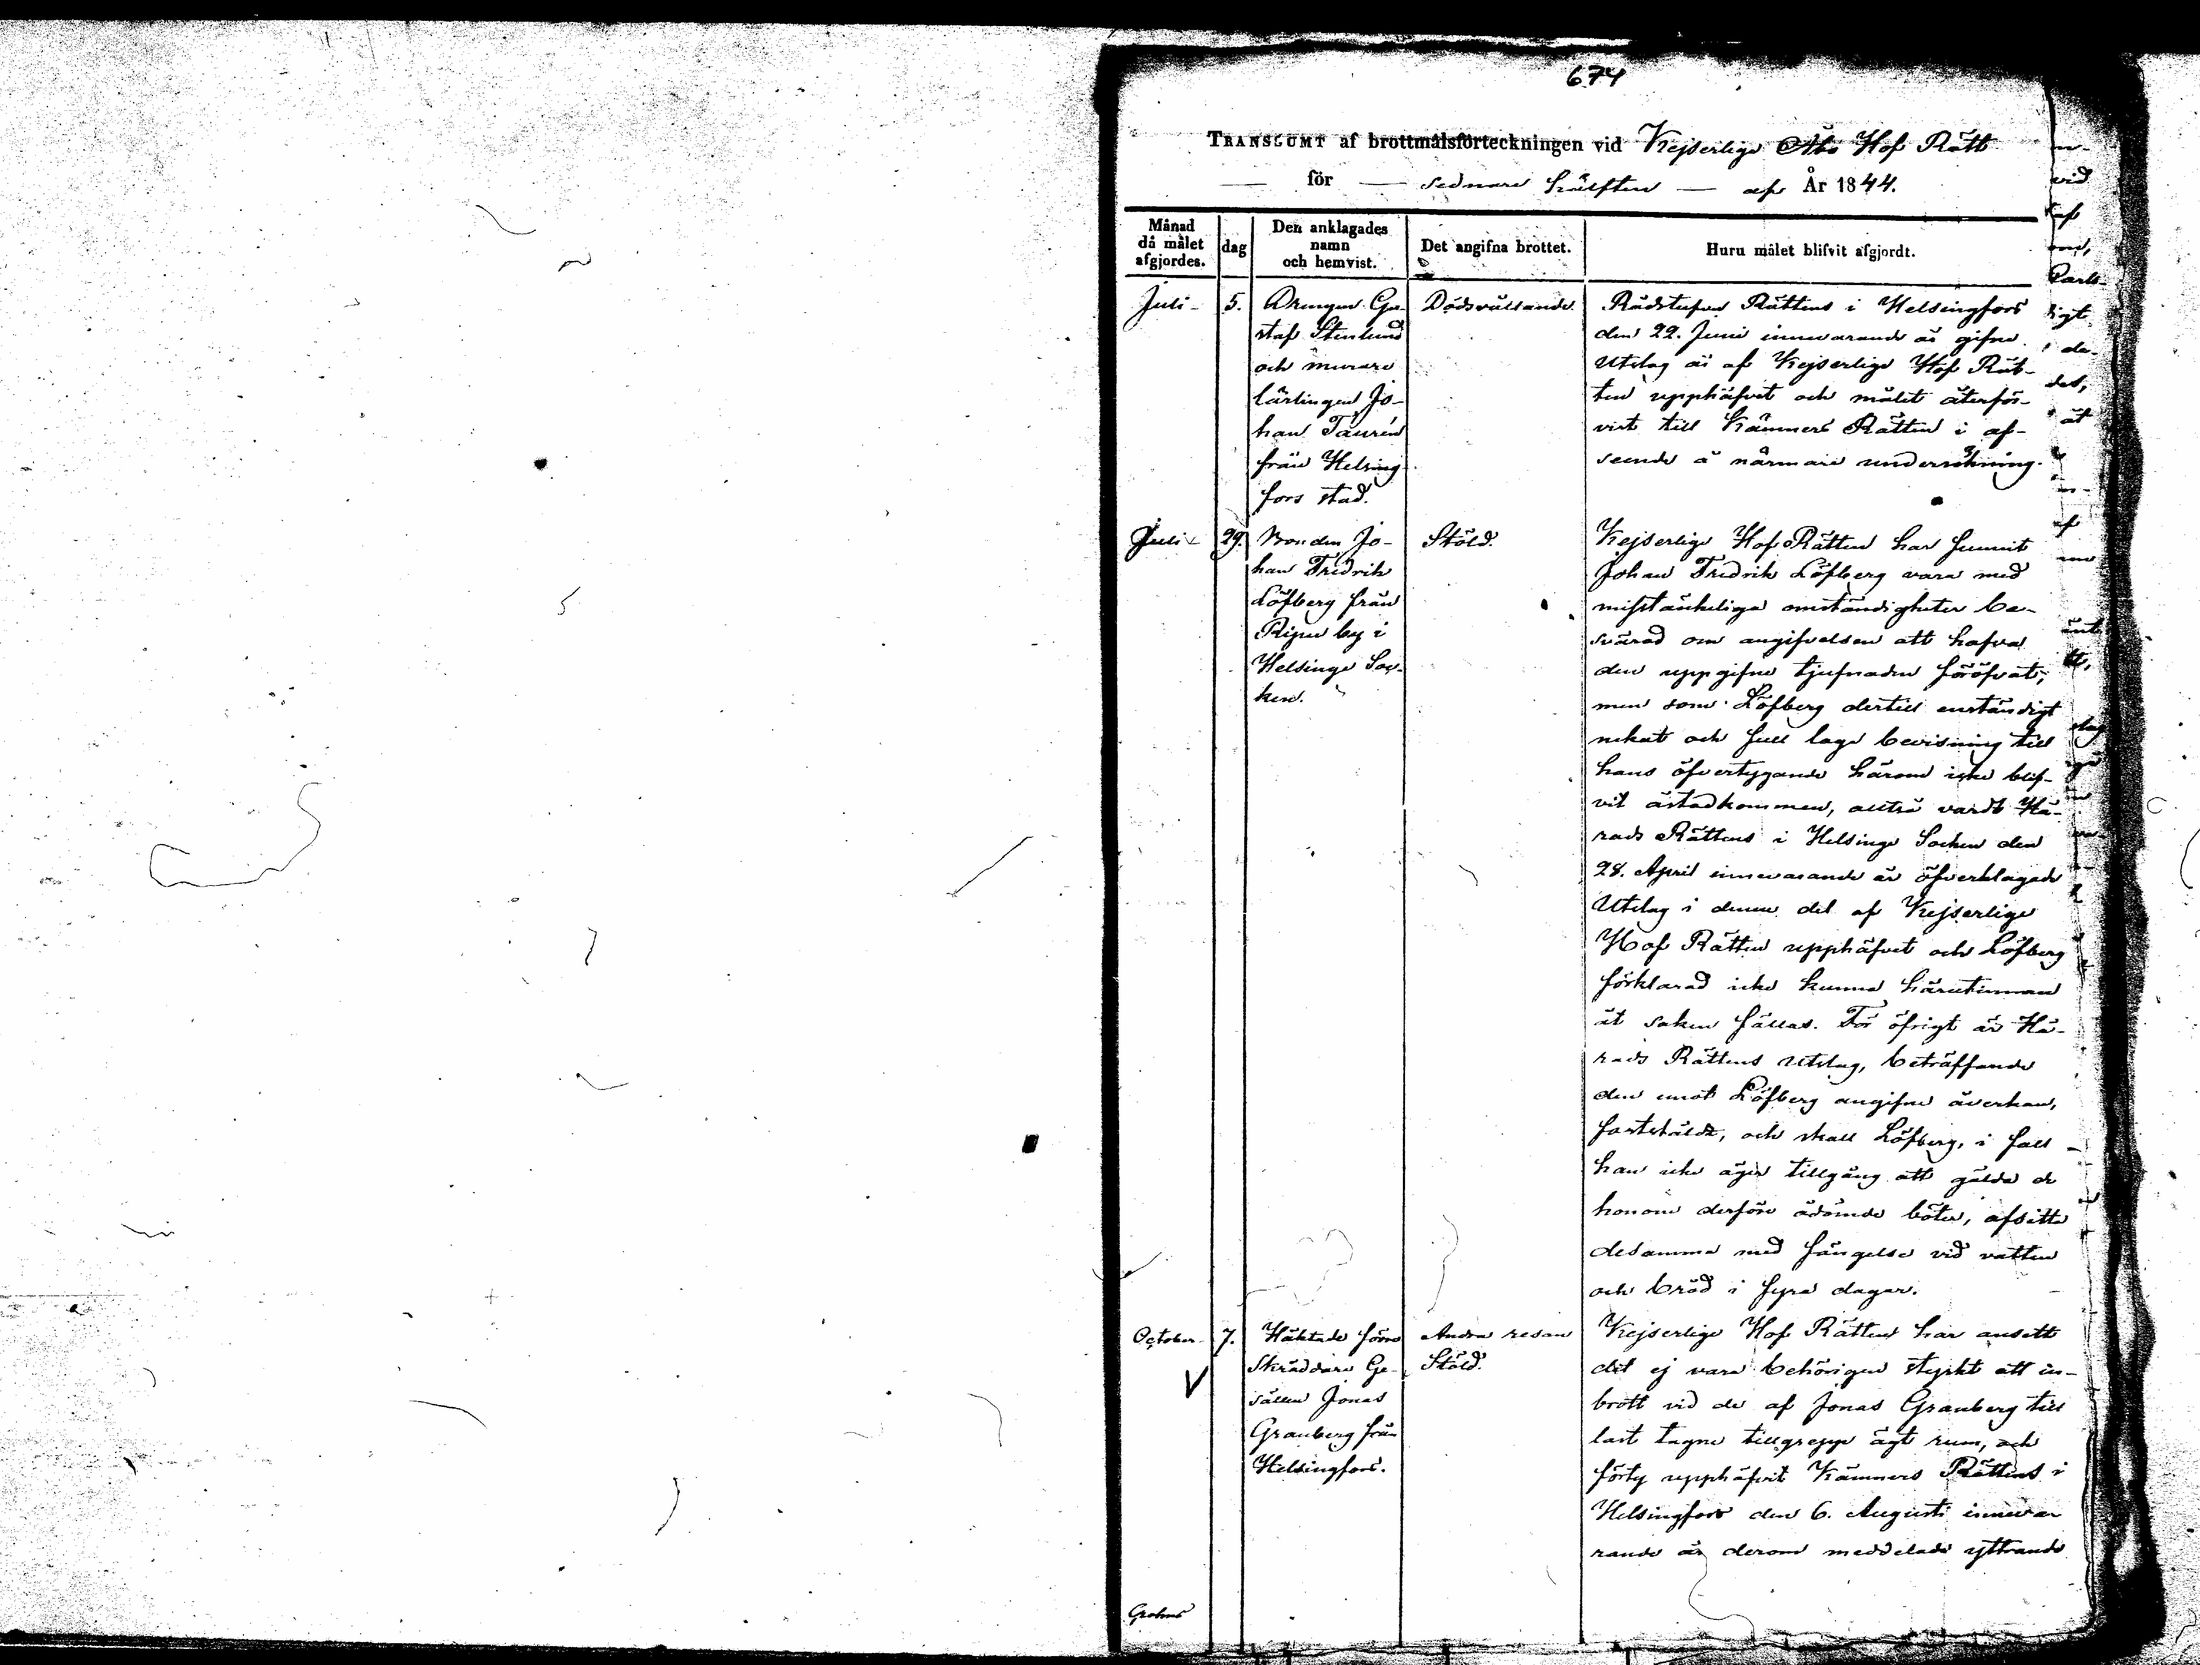 674
TRANSSUMT af brottmålsförteckningen vid Kejserliga Åbo Hof Rätt
för sednare hälften af År 1844.
Månad då målet afgjordes.
dag
Den anklagades namn och hemvist.
Det angifna brottet.
Huru målet blifvit afgjordt.
Juli
5.
Drängen Gu-
staf Stenlund
och murare
lärlingen Jo-
han Taurén
från Helsing
fors stad.
Dödsvållande.
Rådstufvu Rättens i Helsingfors
den 22. Juni innevarande år gifne
Utslag är af Kejserliga Hof Rät-
ten upphäfvet och målet återför-
vist till Kämners Rätten i af-
seende å närmare undersökning.
Juli
29.
Bonden Jo-
han Fredrik
Löfberg från
by i
Helsinge Soc-
ken.
Stöld.
Kejserliga Hof Rätten har funnit
Johan Fredrik Löfberg vara med
misstänkeliga omständigheter be-
svärad om angifvelsen att hafva
den uppgifne tjufnaden föröfvat;
men som Löfberg dertill enständigt
nekat och full laga bevisning till
hans öfvertygande härom icke blif-
vit åstadkommen, alltså vardt Hä-
rads Rättens i Helsinge Socken den
28. April innevarande år öfverklagade
Utslag i denna del af Kejserliga
Hof Rätten upphäfvet och Löfberg
förklarad icke kunna härutinnan
åt saken fällas. För öfrigt är Hä-
rads Rättens Utslag, beträffande
den emot Löfberg angifne åverkan,
fastställdt, och skall Löfberg, i fall
han icke äger tillgång att gälda de
honom derföre ådömde böter, afsitta
desamma med fängelse vid vatten
och bröd i fyra dagar.
October
7.
Häktade förre
Skräddare Ge-
sällen Jonas
Granberg från
Helsingfors.
Andra resan
Stöld.
Kejserliga Hof Rätten har ansett
det ej vara behörigen styrkt att in-
brott vid de af Jonas Granberg till
last tagne tillgrepp ägt rum, och
förty upphäfvit Kämners Rättens i
Helsingfors den 6. Augusti innevar
rande år derom meddelade yttrande